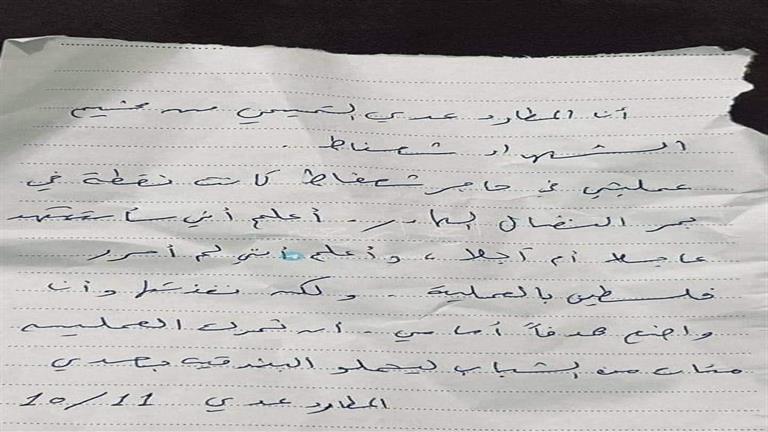 أنا المطارد عدي التميمي من مخيم
الشهداء شعفاط .
عمليتي في حاجز شعفاط كانت نقطة في
بحر النضال الهادر . أعلم أني سأستشهد
عاجلا أم آجلا ، وأعلم أنني لم أحرر
فلسطين بالعملية .. ولكن نفذتها وأنا
واضع هدفاً أمامي .. أن تحرك العملية
مئات من الشباب ليحملو البندقية بعدي
المطارد عدي 10/11